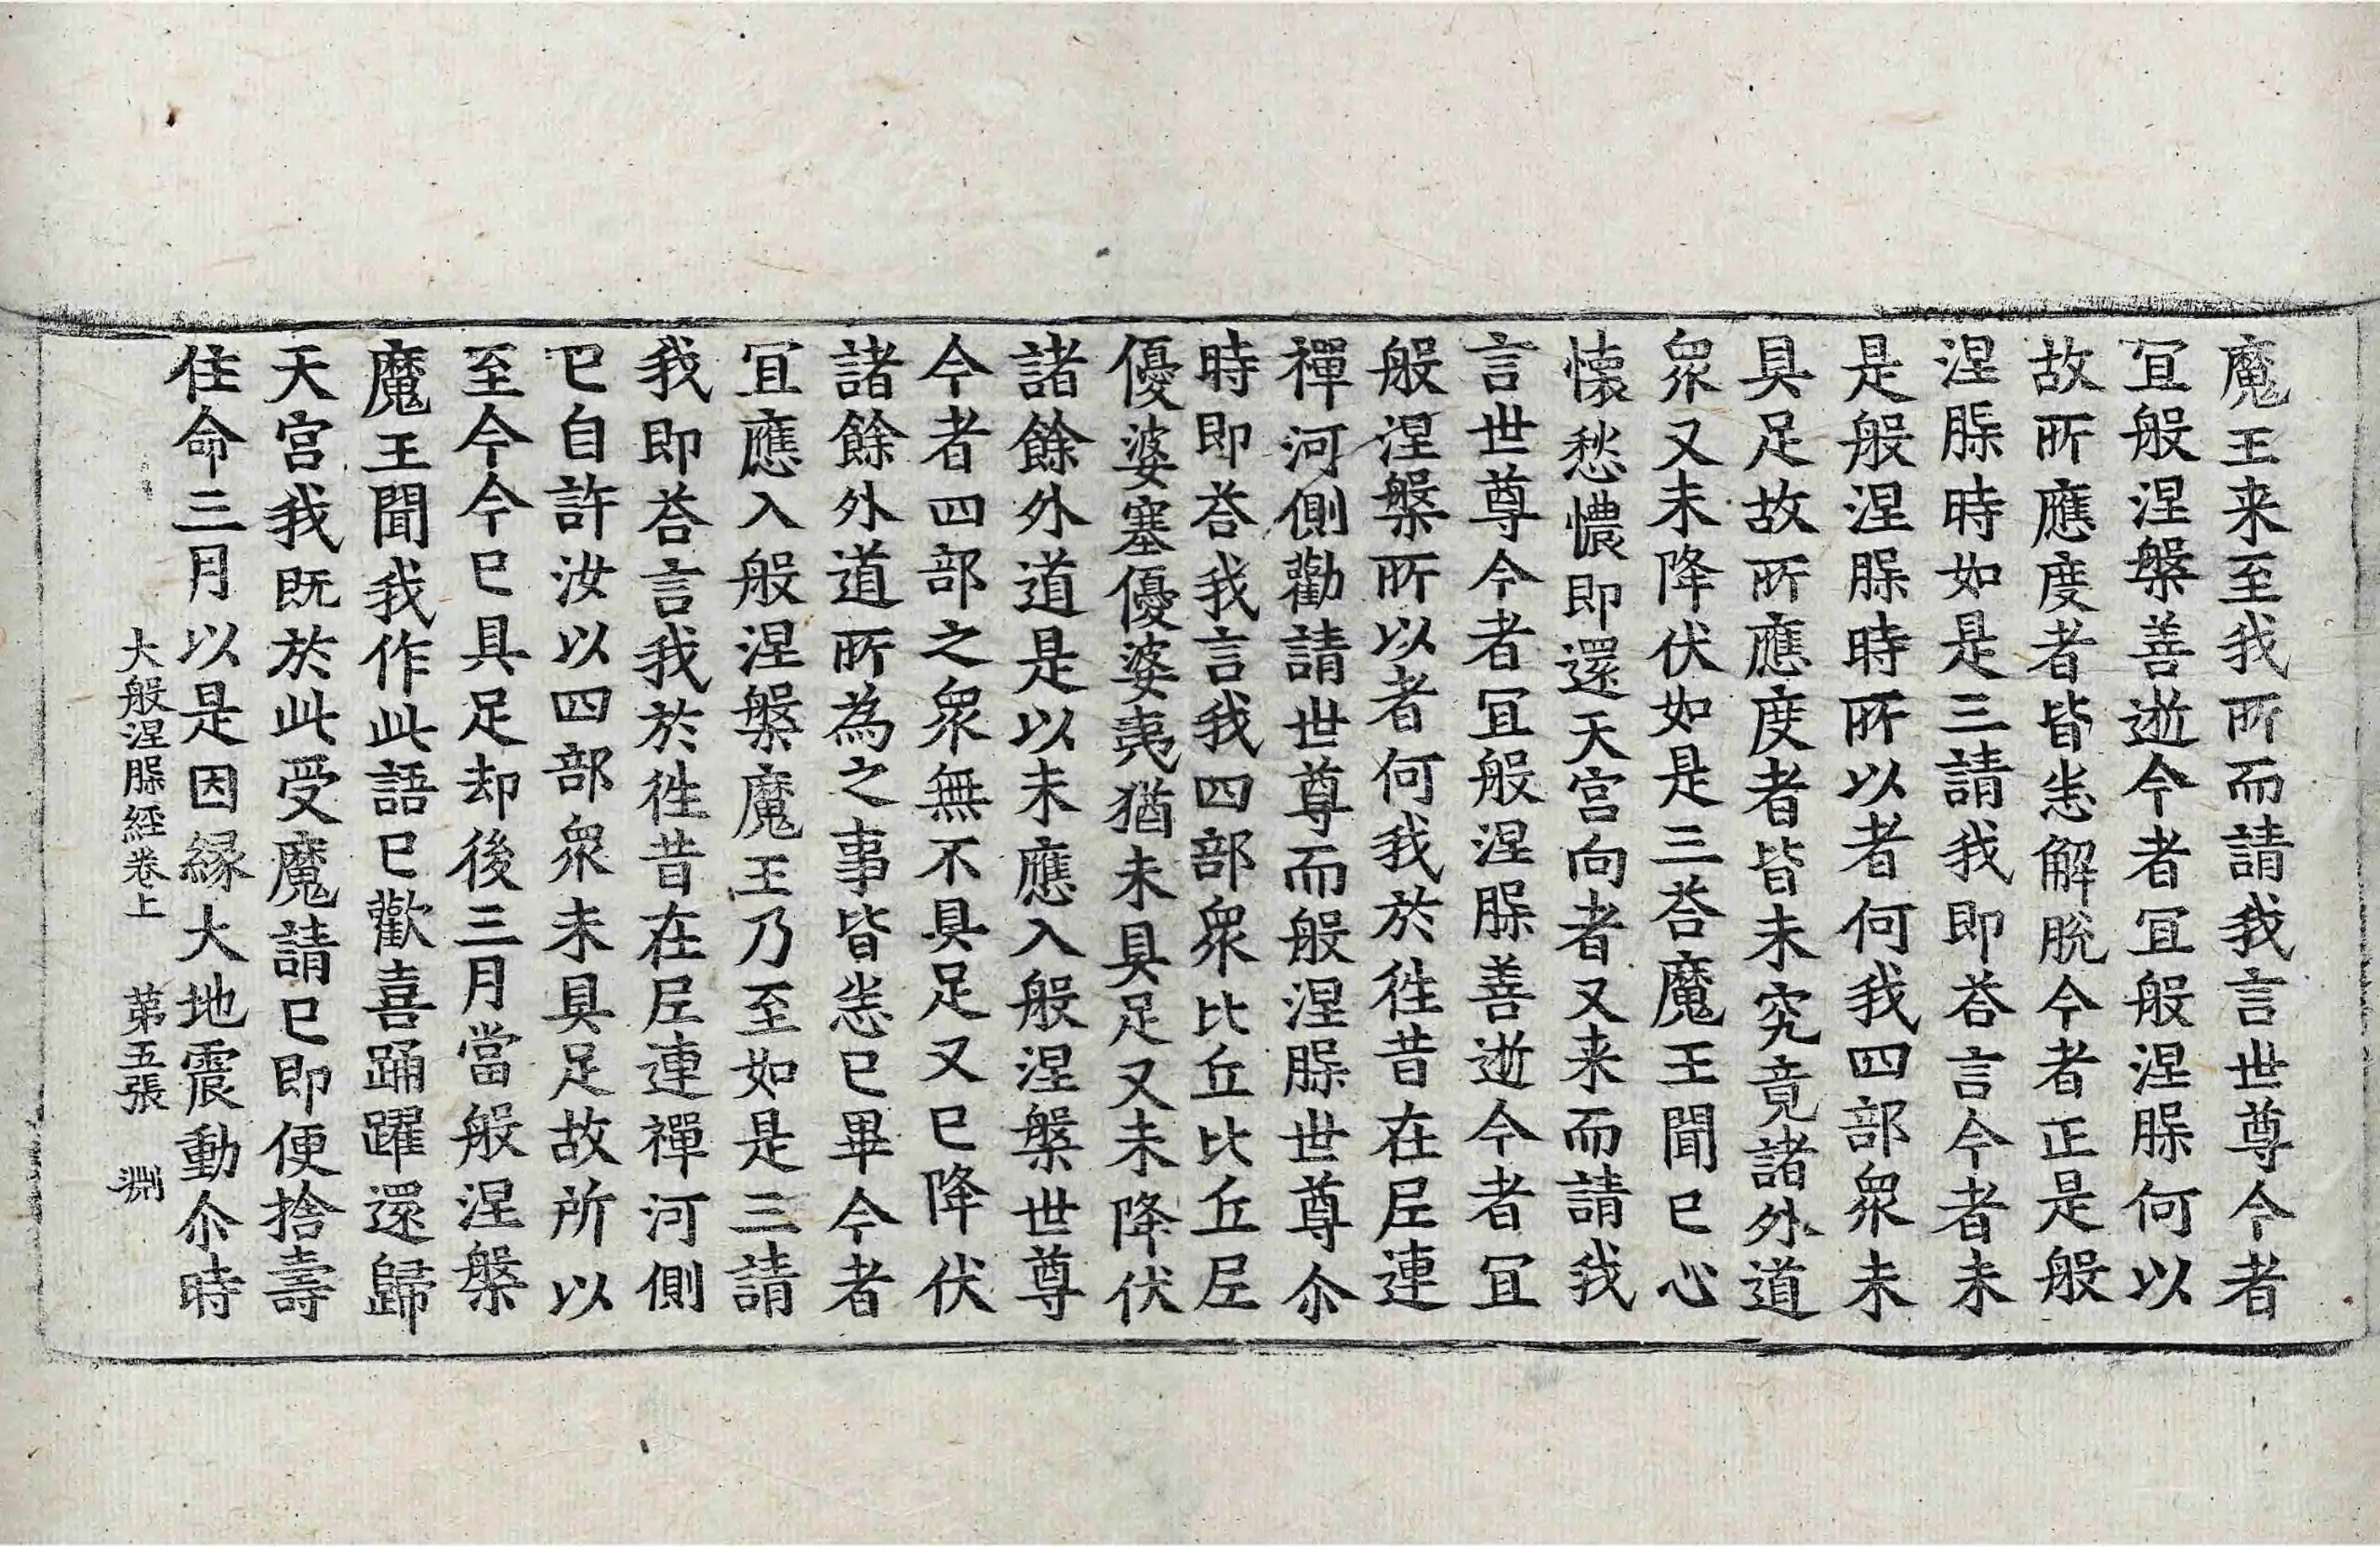 魔王来至我所而請我言世尊今者
冝般涅槃善逝今者冝般涅槃何以
故所應度者皆悉解脱今者正是般
涅槃時如是三請我即荅言今者未
是般涅槃時所以者何我四部衆未
具足故所應度者皆未究竟諸外道
衆又未降伏如是三荅魔王聞已心
懐愁憹即還天宫向者又来而請我
言世尊今者冝般涅槃善逝今者冝
般涅槃所以者何我於徃昔在尼連
禪河側勸請世尊而般涅槃世尊尒
時即荅我言我四部衆比丘比丘尼
優婆塞優婆夷猶未具足又未降伏
諸餘外道是以未應入般涅槃世尊
今者四部之衆無不具足又已降伏
諸餘外道所為之事皆悉已畢今者
冝應入般涅槃魔王乃至如是三請
我即荅言我於徃昔在尼連禪河側
已自許汝以四部衆未具足故所以
至今今已具足却後三月當般涅槃
魔王聞我作此語已歡喜踊躍還歸
天宫我既於此受魔請已即便捨壽
住命三月以是因縁大地震動尒時
大般涅槃經卷上 第五張 淵